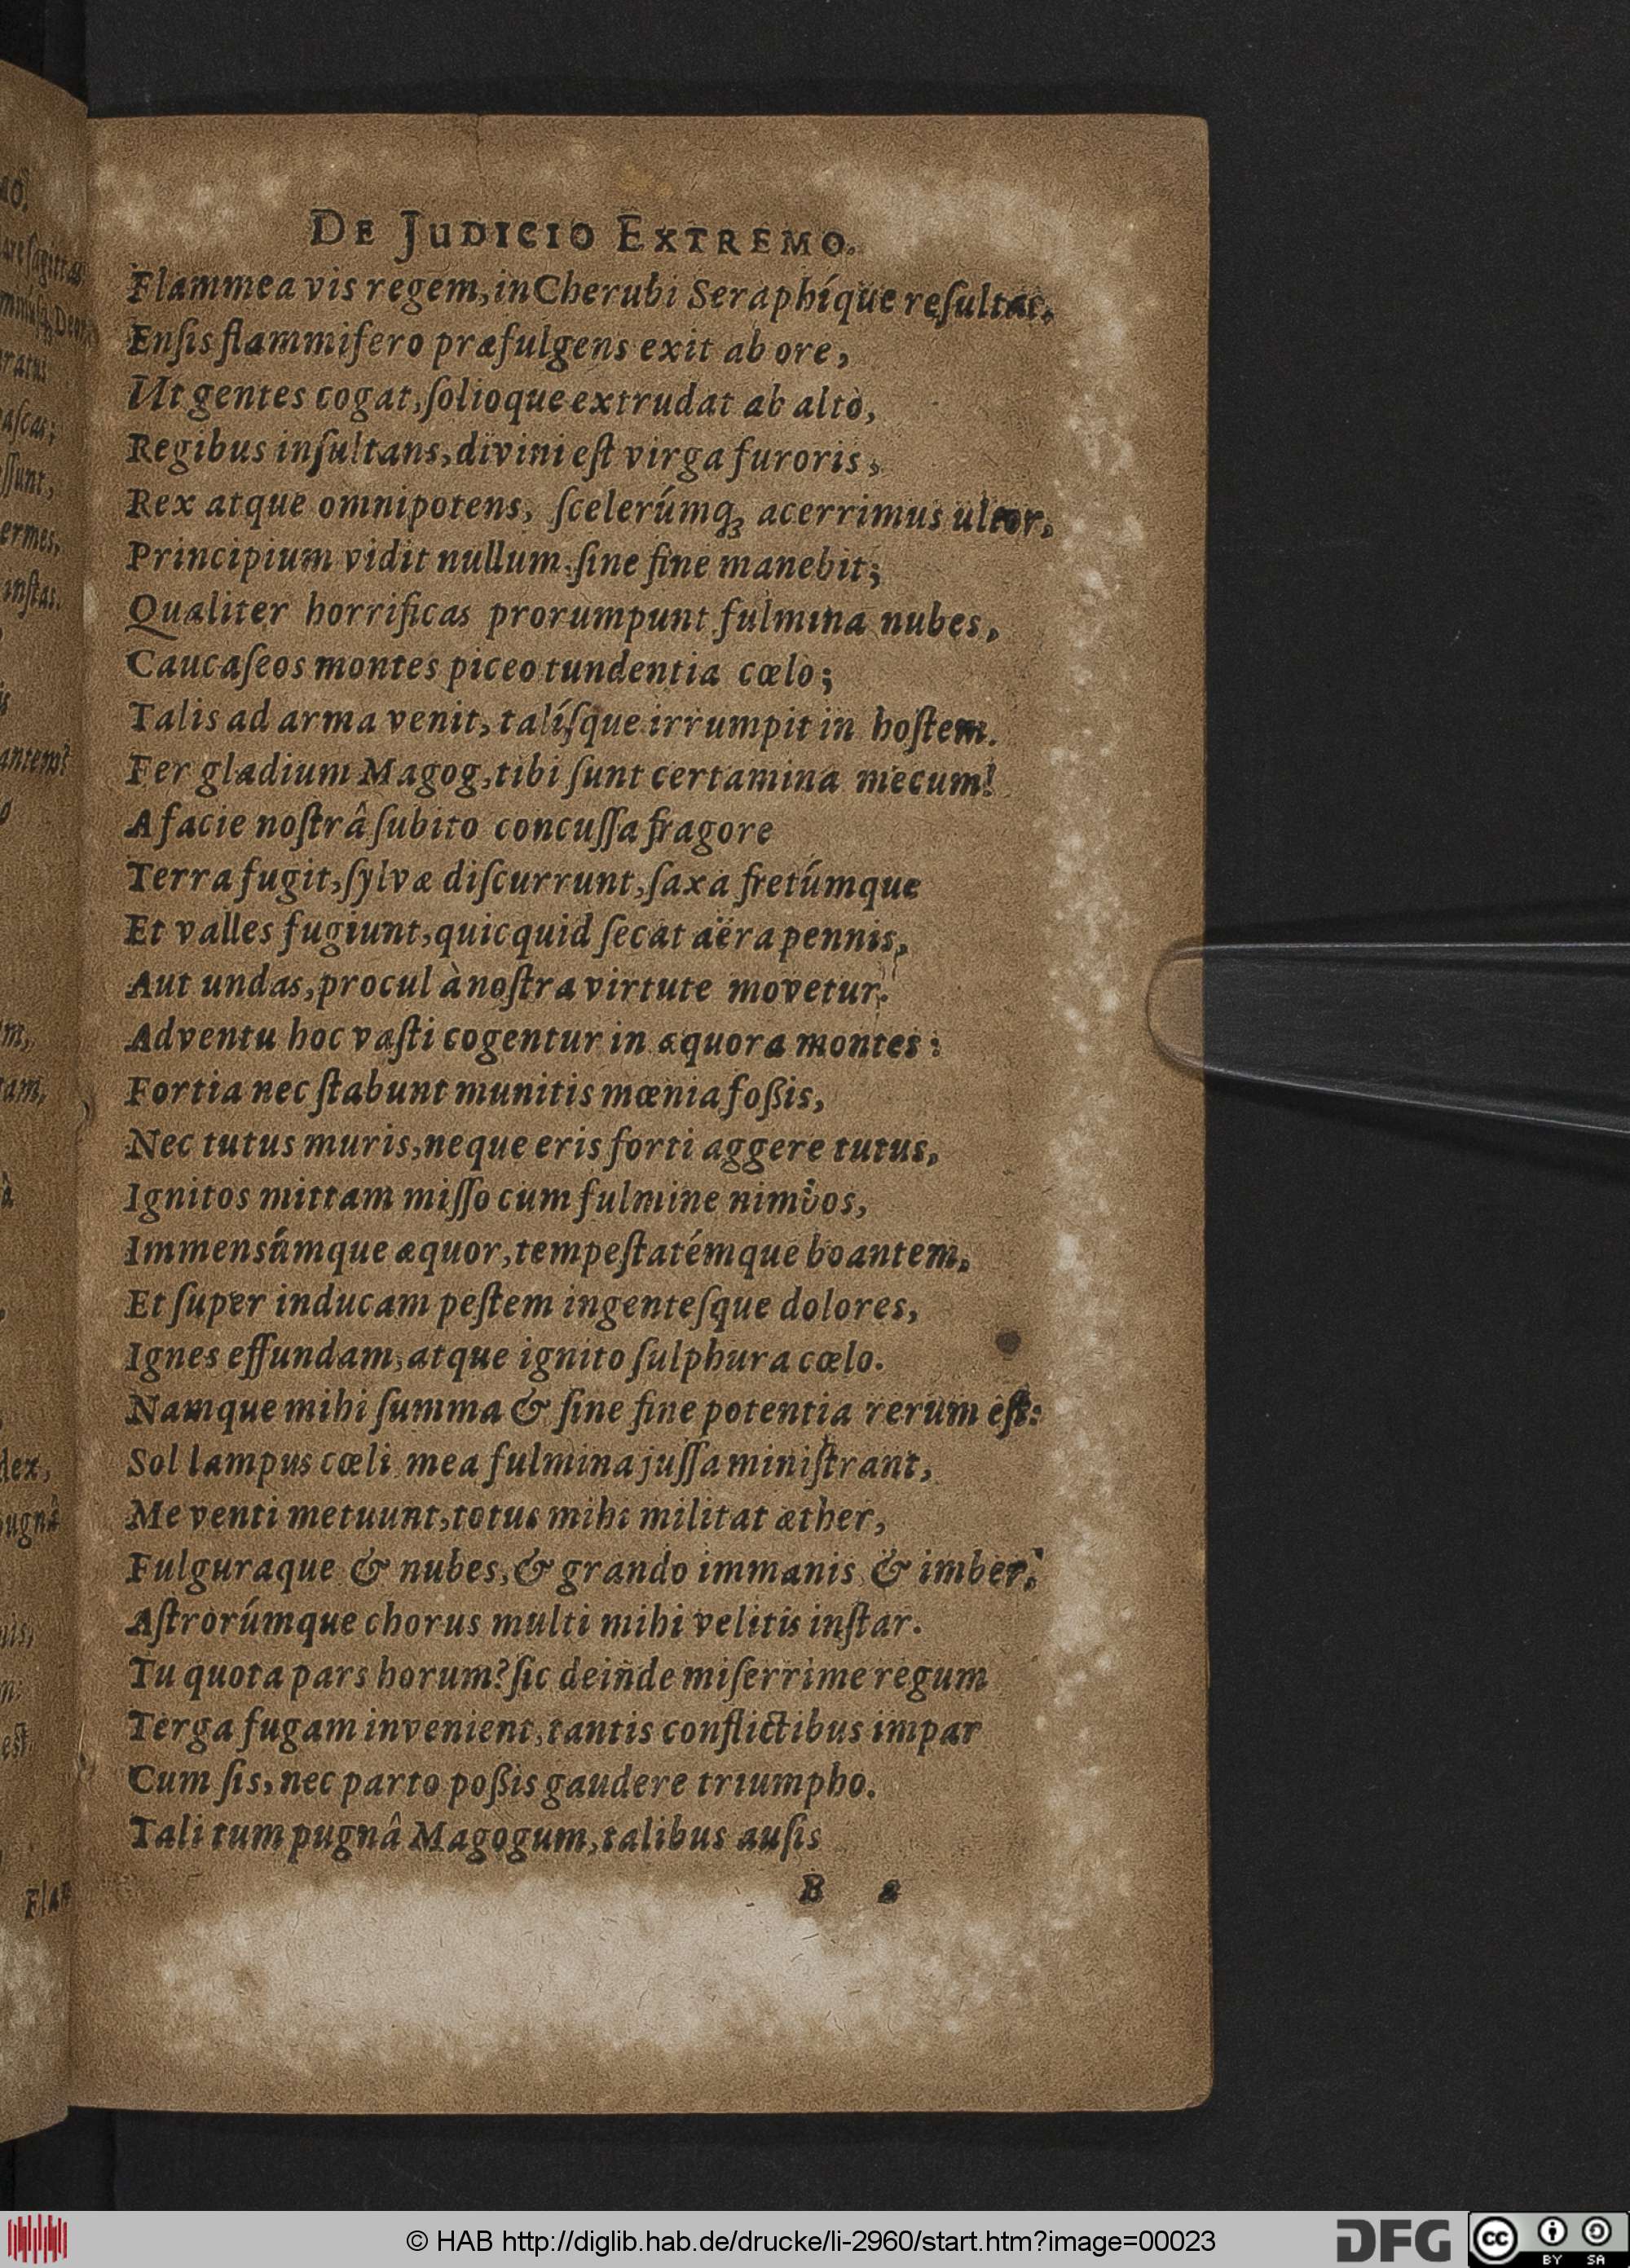 DE JUDICIO EXTREMO.
Flammea vis regem, in Cherubi Seraphíque reſultat,
Enſis flammifero præfulgens exit ab ore,
Ut gentes cogat, ſolioque extrudat ab altò,
Regibus inſultans, divini eſt virga furoris,
Rex atque omnipotens, ſcelerúmq́ꝫ acerrimus ultor,
Principium vidit nullum, ſine fine manebit;
Qualiter horrificas prorumpunt fulmina nubes,
Caucaſeos montes piceo tundentia cœlo;
Talis ad arma venit, talíſque irrumpit in hoſtem.
Fer gladium Magog, tibi ſunt certamina mecum!
A facie noſtrâ ſubito concuſſa fragore
Terra fugit, ſylvæ diſcurrunt, ſaxa fretúmque
Et valles fugiunt, quicquid ſecat aëra pennis,
Aut undas, procul à noſtra virtute movetur.
Adventu hoc vaſti cogentur in æquora montes:
Fortia nec ſtabunt munitis mœnia foßis,
Nec tutus muris, neque eris forti aggere tutus,
Ignitos mittam miſſo cum fulmine nimbos,
Immensúmque æquor, tempeſtatémque boantem,
Et ſuper inducam peſtem ingenteſque dolores,
Ignes effundam, atque ignito ſulphura cœlo.
Namque mihi ſumma & ſine fine potentia rerum eſt:
Sol lampus cœli mea fulmina juſſa miniſtrant,
Me venti metuunt, totus mihi militat æther,
Fulguraque & nubes, & grando immanis & imber,
Aſtrorúmque chorus multi mihi velitis inſtar.
Tu quota pars horum? ſic deinde miſerrime regum
Terga fugam invenient, tantis conflictibus impar
Cum ſis, nec parto poßis gaudere triumpho.
Tali tum pugnâ Magogum, talibus auſis
B 2
© HAB http://diglib.hab.de/drucke/li-2960/start.htm?image=00023
DFG
cc BY SA